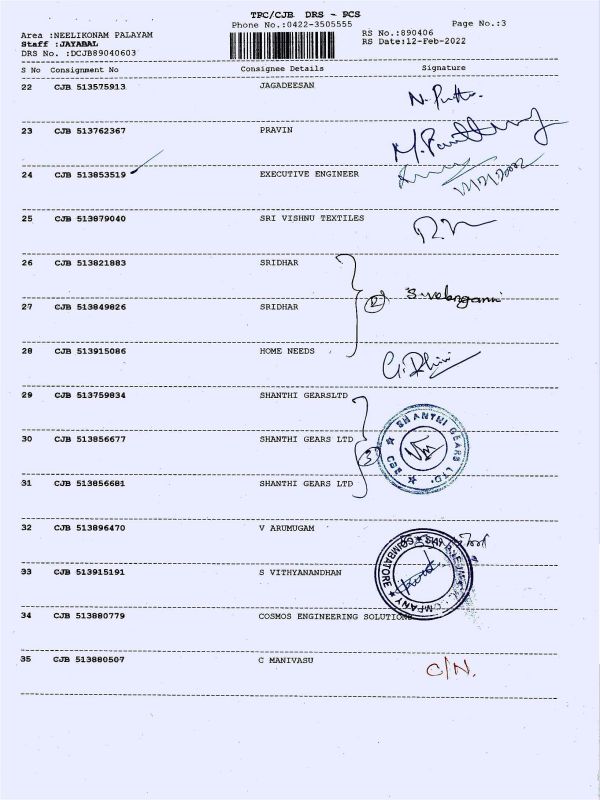 TPC/CJB DRS - PCS
Phone No.:0422-3505555
Page No.:3
Area :NEELIKONAM PALAYAM
RS No.:890406
Staff :JAYABAL
RS Date:12-Feb-2022
DRS No. :DCJB89040603
S No Consignment No Consignee Details Signature
22 CJB 513575913 JAGADEESAN
23 CJB 513762367 PRAVIN
24 CJB 513853519 EXECUTIVE ENGINEER
25 CJB 513879040 SRI VISHNU TEXTILES
26 CJB 513821883 SRIDHAR
27 CJB 513849826 SRIDHAR
28 CJB 513915086 HOME NEEDS
29 CJB 513759834 SHANTHI GEARSLTD
30 CJB 513856677 SHANTHI GEARS LTD
SHANTHI GEARS LTD.
31 CJB 513856681 SHANTHI GEARS LTD
32 CJB 513896470 V ARUMUGAM
33 CJB 513915191 S VITHYANANDHAN
COIMBATORE
34 CJB 513880779 COSMOS ENGINEERING SOLUTIONS
35 CJB 513880507 C MANIVASU
C/N.